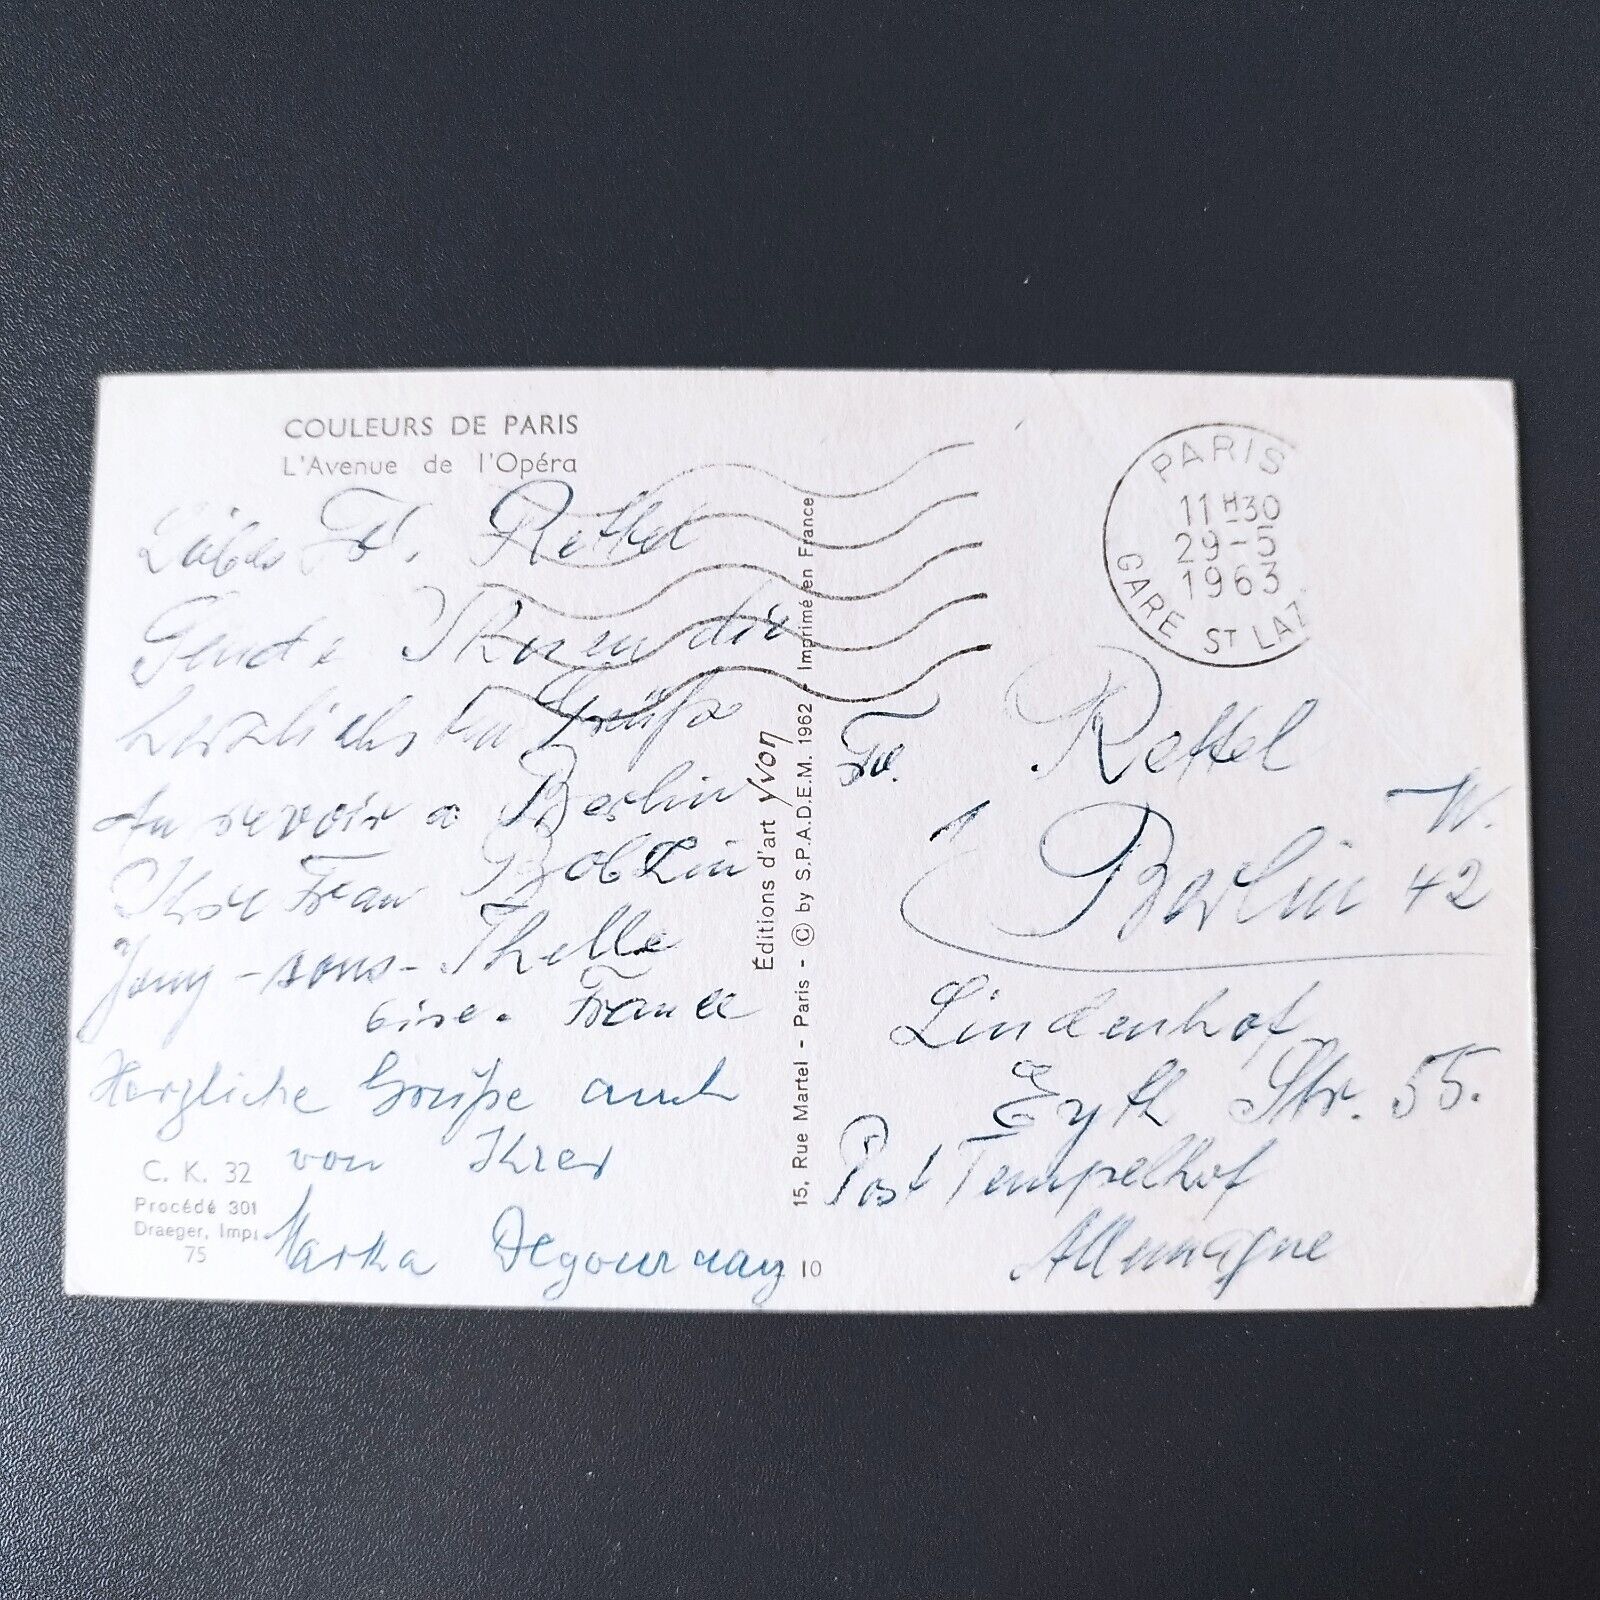 COULEURS DE PARIS
L'Avenue de l'Opéra
Liebes Frl. Rettel
Sende Ihnen die
herzlichsten Grüße
Au revoir a Berlin
Ihre Frau
Jouy-sous-Thelle
Oise. France
Herzliche Grüße auch
von Ihrer
Marka Degournay
C. K. 32
Procédé 301
Draeger, Impr.
75
10
Éditions d'art Yvon
15, Rue Martel - Paris - © by S.P.A.D.E.M. 1962 - Imprimé en France
PARIS
11H30
29-5
1963
GARE ST LAZ
Rettel
W.
Berlin 42
Lindenhof
Eyth Str. 55.
Post Tempelhof
Allemagne